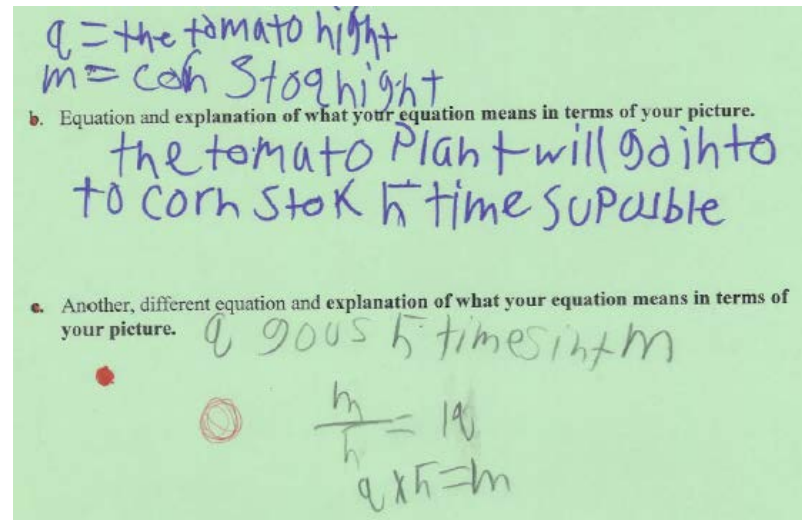 q = the tomato hight
m = corn Stoq hight
b. Equation and explanation of what your equation means in terms of your picture.
the tomato Plant will go into
to corn Stok 5 time
c. Another, different equation and explanation of what your equation means in terms of
your picture. q gous 5 times int m
m/5 = 1q
q x 5 = m